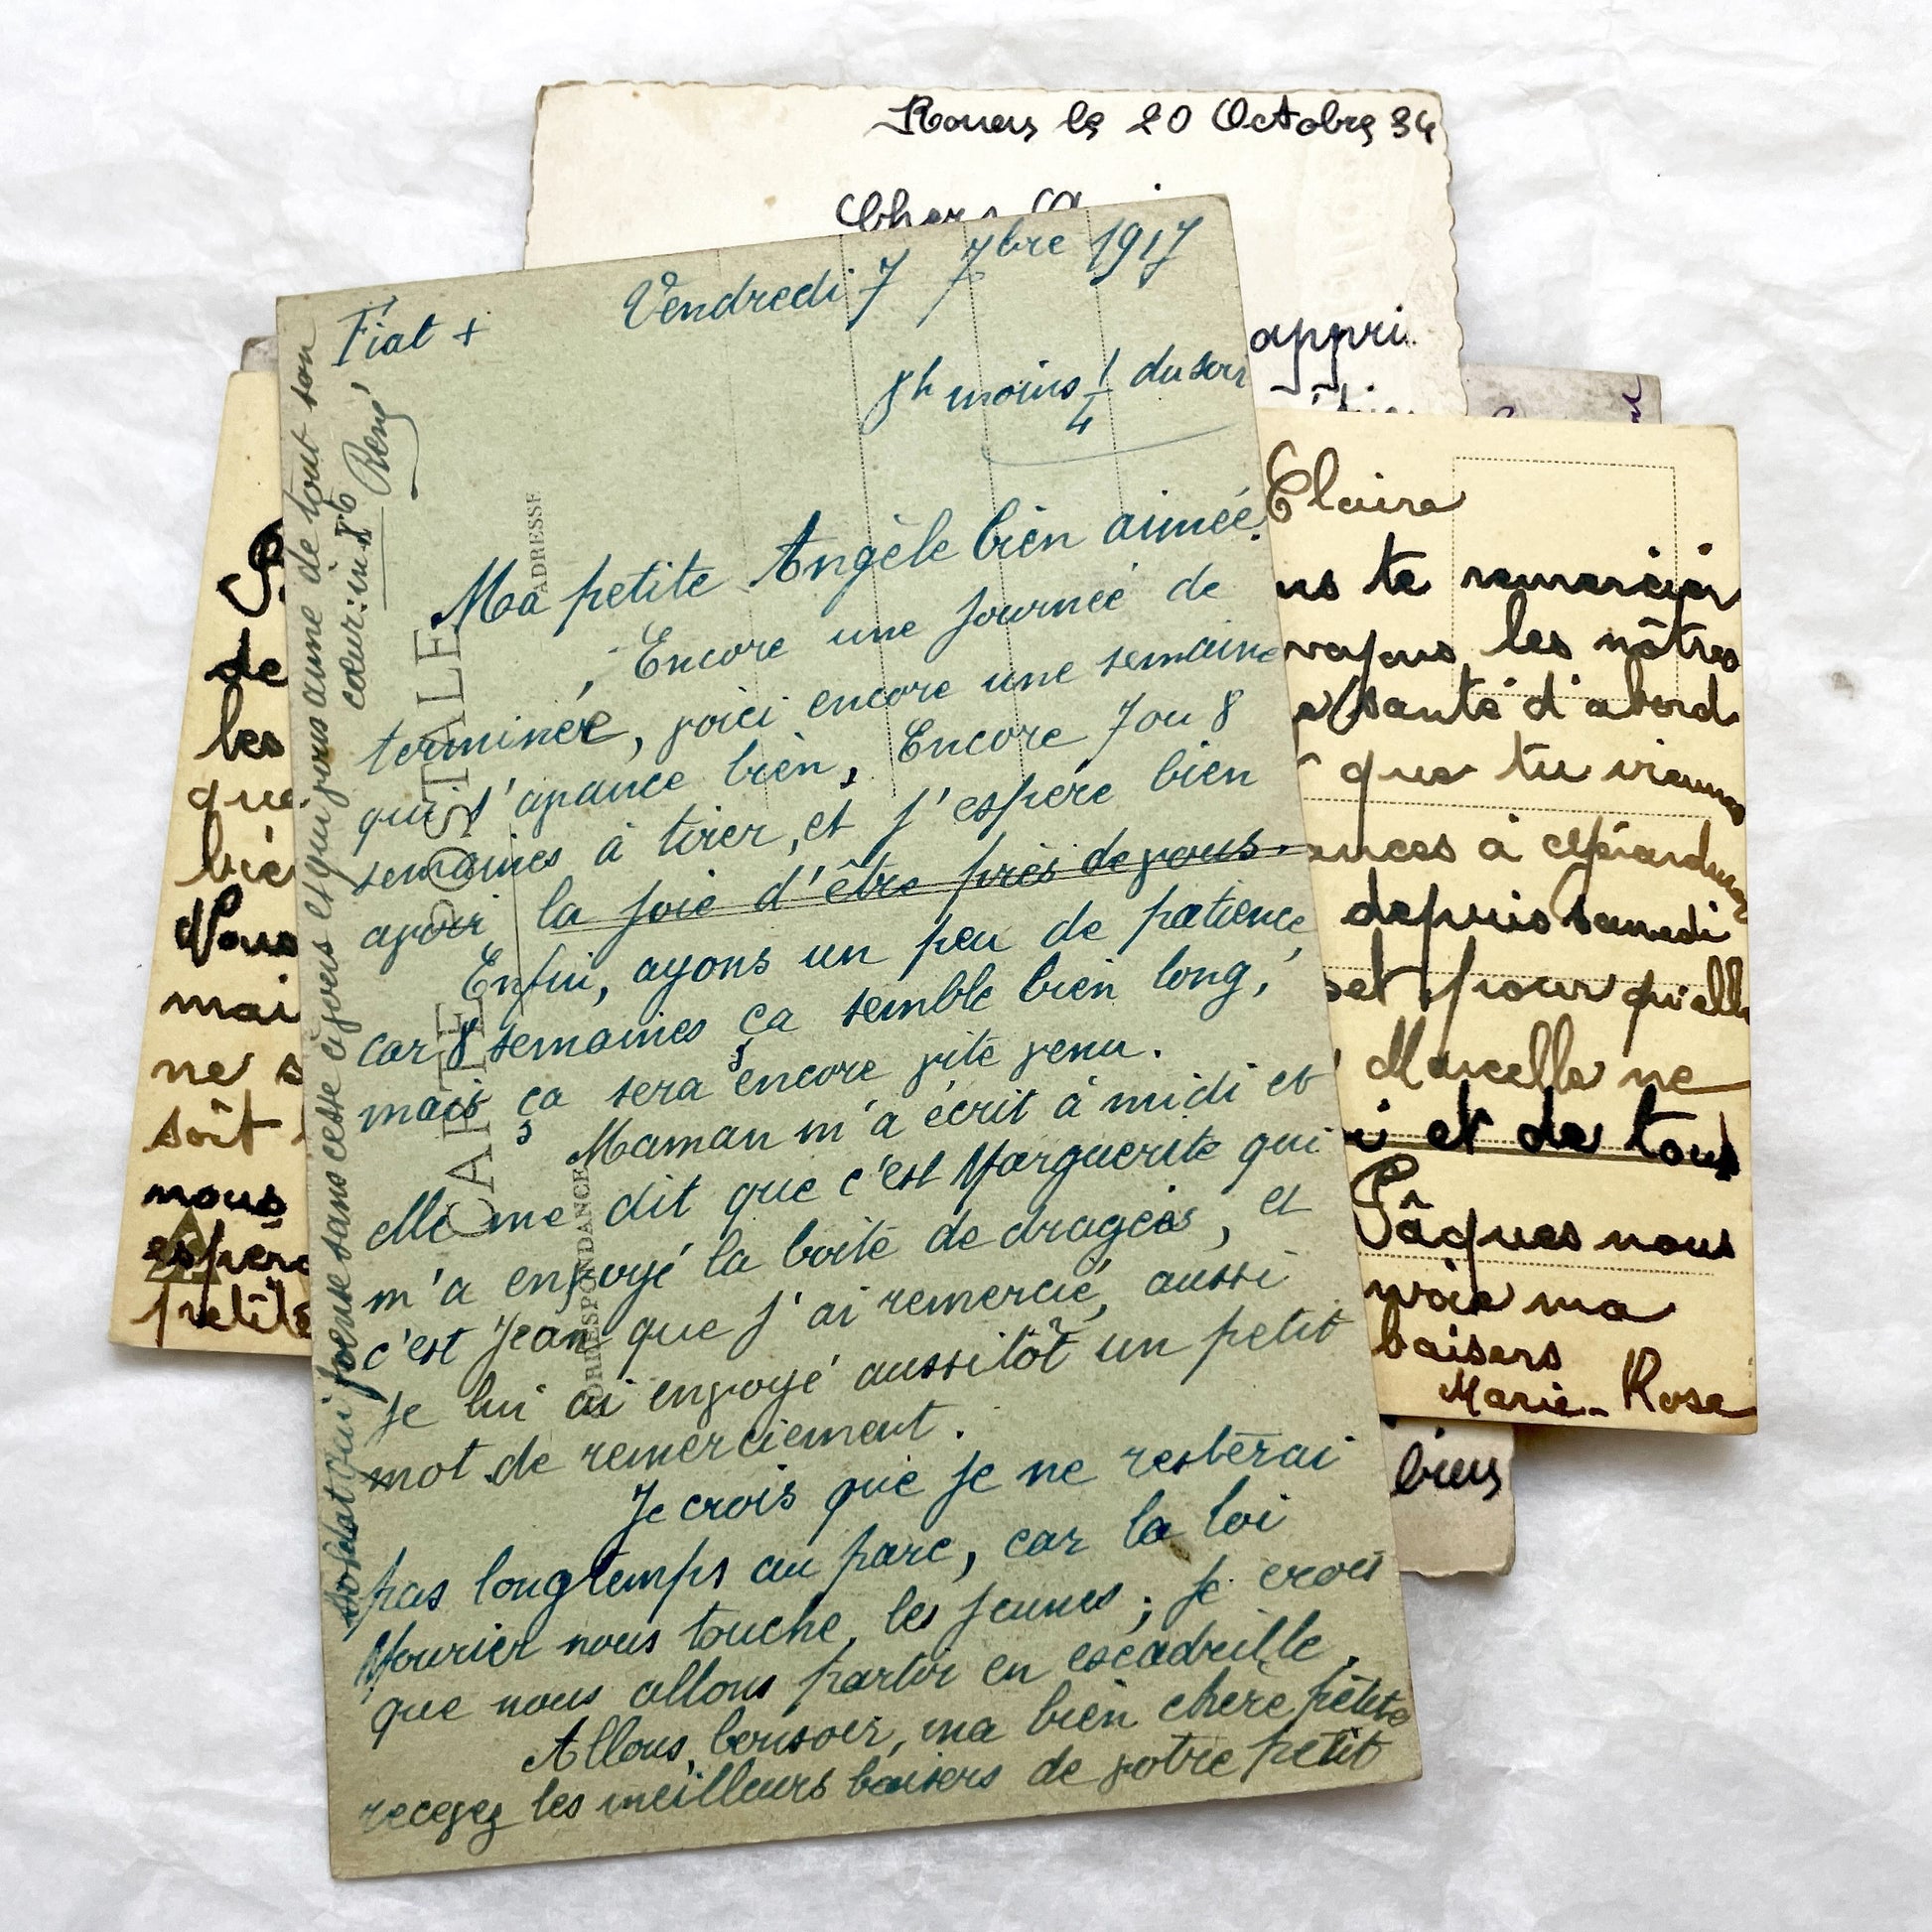 Rouen le 20 Octobre 34
appri
Fiat +
Vendredi 7 7bre 1917
8h moins 1/4 du soir
Ma petite Angèle bien aimée.
Encore une journée de
terminée, voici encore une semaine
qui s'avance bien, Encore 7 ou 8
semaines à tirer, et j'espère bien
avoir la joie d'être près de vous.
Enfin, ayons un peu de patience,
car 8 semaines ça semble bien long,
mais ça sera encore vite venu.
Maman m'a écrit à midi et
elle me dit que c'est Marguerite qui
m'a envoyé la boîte de dragées, et
c'est Jean que j'ai remercié, aussi
je lui ai envoyé aussitôt un petit
mot de remerciement.
Je crois que je ne resterai
pas longtemps au parc, car la loi
Mourier nous touche, les jeunes ; je crois
que nous allons partir en escadrille.
Allons, bonsoir, ma bien chère petite
recevez les meilleurs baisers de votre petit
soldat qui pense sans cesse à vous et qui vous aime de tout son
cœur. in X to
René
CARTE POSTALE
ADRESSE
CORRESPONDANCE
de
les
que
Vous
mai
ne s
soit
nous
petite
Claire
ns te remercier
voyons les nôtres
santé d'abord
que tu viennes
depuis samedi
et pour qu'elle
Marcelle ne
i et de tous
Pâques nous
nvoie ma
baisers
Marie-Rose
biens